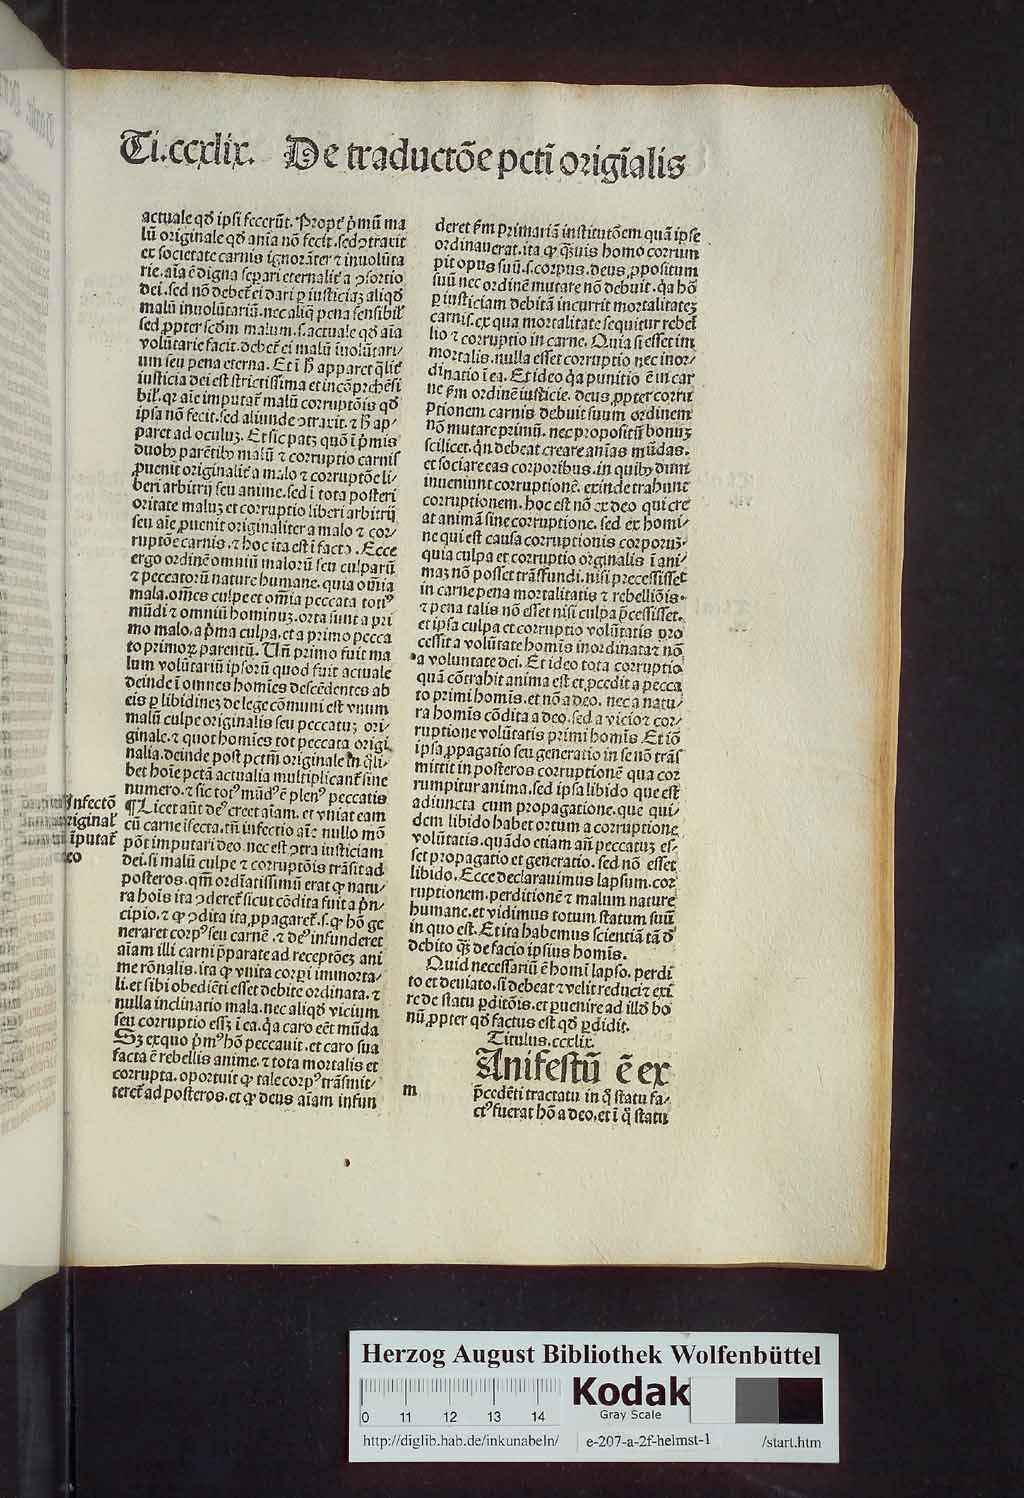 Ti.ccxlix. De traductōe pctī origīalis
actuale qđ ipsi fecerūt. Propt̓ p̓mū ma
lū originale qđ anīa nō fecit. sed ꝯtraxit
ex societate carnis ignorāter ⁊ inuolūta
rie. aīa ē digna separi eternalit̓ a ꝯsortio
dei. sed nō debet̓ ei dari ꝑ iusticiaꝫ aliqđ
malū inuolūtariū. nec aliq̄ pena sensibil̓
sed ꝓpter scđm malum .s. actuale qđ aīa
volūtarie facit. debet̓ ei malū īuolūtari/
um seu pena eterna. Et ī h̄ apparet q̄lit̓
iusticia dei est strictissima et incōp̄rehēsi
bil̓. qꝛ aīe imputat̓ malū corruptōis qđ
ipsa nō fecit. sed aliunde ꝯtraxit. ⁊ h̄ ap/
paret ad oculuꝫ. Et sic patꝫ quō ī p̓mis
duobꝰ parētibꝰ malū ⁊ corruptio carnis
ꝓuenit originalit̓ a malo ⁊ corruptōe li/
beri arbitrij seu anime. sed ī tota posteri
oritate maluꝫ et corruptio liberi arbitrij
seu aīe ꝓuenit originaliter a malo ⁊ cor/
ruptōe carnis. ⁊ hoc ita est ī facto. Ecce
ergo ordinē omniū malorū seu culparū
⁊ peccatorū nature humane. quia om̄ia
mala. om̄es culpe et om̄ia peccata totiꝰ
mūdi ⁊ omniū hominuꝫ. orta sunt a pri
mo malo. a p̓ma culpa. et a primo pecca
to primoꝝ parentū. Un̄ primo fuit ma
lum volūtariū ipsorū quod fuit actuale
deinde ī omnes homīes descēdentes ab
eis ꝑ libidineꝫ de lege cōmuni est vnum
malū culpe originalis seu peccatuꝫ ori/
ginale. ⁊ quot homīes tot peccata origi
nalia. deinde post pctm̄ originale in q̄li/
bet hoīe pctā actualia multiplicant̓ sine
numero. ⁊ sic totꝰ mūdꝰ ē plenꝰ peccatis
¶ Licet aūt deꝰ creet aīam. et vniat eam
cū carne īfecta. tn̄ infectio aīe nullo mō
pōt imputari deo. nec est ꝯtra iusticiam
dei. si malū culpe ⁊ corruptōis trāsit ad
posteros. qm̄ ordīatissimū erat ꝙ natu/
ra hoīs ita ꝯderet̓ sicut cōdita fuit a p̓n/
cipio. ⁊ ꝙ ꝯdita ita ꝓpagaret̓ .s. ꝙ hō ge
neraret corpꝰ seu carnē. ⁊ deꝰ infunderet
aīam illi carni p̄parate ad receptōeꝫ ani
me rōnalis. ita ꝙ vnita corpi immorta/
li. et sibi obediēti esset debite ordinata. ⁊
nulla inclinatio mala. nec aliqđ vicium
seu corruptio essꝫ ī ea. q̓a caro eēt mūda
Sꝫ exquo p̓mꝰ hō peccauit. et caro sua
facta ē rebellis anime. ⁊ tota mortalis et
corrupta. oportuit ꝙ tale corpꝰ trāsmit/
teret̓ ad posteros. et ꝙ deus aīam infun
Infectō
original̓
īputat̓
eo
deret fm̄ primariā institutōem quā ipse
ordinauerat. ita ꝙ q̄ꝫuis homo corrum
pit opus suū .s. corpus. deus ꝓpositum
suū nec ordinē mutare nō debuit. q̓a hō
ꝑ iusticiam debitā incurrit mortalitateꝫ
carnis. ex qua mortalitate sequitur rebel
lio ⁊ corruptio in carne. Quia si esset im
mortalis. nulla esset corruptio nec inor/
dīnatio ī ea. Et ideo q̓a punitio ē in car
ne fm̄ ordinē iusticie. deus ꝓpter corru
ptionem carnis debuit suum ordinem
nō mutare primū. nec propositū bonuꝫ
scilicet. q̓n debeat creare anīas mūdas.
et sociare eas corporibus. in quibꝰ dum
inueniunt corruptionē. exinde trahunt
corruptionem. hoc est nō ex deo qui cre
at animā sine corruptione. sed ex homi/
ne qui est causa corruptionis corporuꝫ.
quia culpa et corruptio orginalis ī ani/
maꝫ nō posset trāsfundi. nisi precessisset
in carne pena mortalitatis ⁊ rebelliōis.
⁊ pena talis nō esset nisi culpa p̄cessisset.
et ipsa culpa et corruptio volūtatis pro
cessit a volūtate homīs inordinata ⁊ nō
a voluntate dei. Et ideo tota corruptio
quā cōtrahit anima est et ꝓcedit a pecca
to primi homīs. et nō a deo. nec a natu/
ra homīs cōdita a deo. sed a vicio ⁊ cor/
ruptione volūtatis primi homīs. Et iō
ipsa ꝓpagatio seu generatio in se nō trās
mittit in posteros corruptionē qua cor
rumpitur anima. sed ipsa libido que est
adiuncta cum propagatione. que qui/
dem libido habet ortum a corruptione
volūtatis. quādo etiam an̄ peccatuꝫ es/
set propagatio et generatio. sed nō esset
libido. Ecce declarauimus lapsum. cor
ruptionem. perditionē ⁊ malum nature
humane. et vidimus totum statum suū
in quo est. Et ita habemus scientiā tā đ
debito q̄ꝫ de facio ipsius homīs.
Quid necessariū ē homī lapso. perdi
to et deuiato. si debeat ⁊ velit reduci ⁊ exi
re de statu ꝑditōis. et ꝑuenire ad illđ bo
nū ꝓpter qđ factus est qđ ꝑdidit.
Titulus. ccxlix.
m
Anifestū ē ex
p̄cedēti tractatu in q̊ statu fa/
ctꝰ fuerat hō a deo. et ī q̊ statu
Herzog August Bibliothek Wolfenbüttel
Kodak
Gray Scale
0 11 12 13 14
http://diglib.hab.de/inkunabeln/ e-207-a-2f-helmst-1 /start.htm